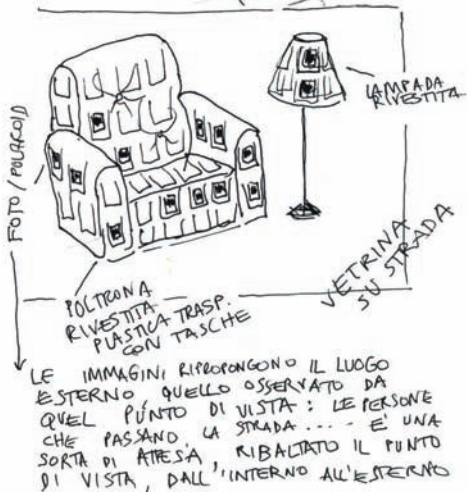 LAMPADA
RIVESTITA
FOTO / POLAROID
VETRINA
SU STRADA
POLTRONA
RIVESTITA
PLASTICA TRASP.
CON TASCHE
LE IMMAGINI RIPROPONGONO IL LUOGO
ESTERNO, QUELLO OSSERVATO DA
QUEL PUNTO DI VISTA : LE PERSONE
CHE PASSANO, LA STRADA..... E' UNA
SORTA DI ATTESA, RIBALTATO IL PUNTO
DI VISTA, DALL'INTERNO ALL'ESTERNO